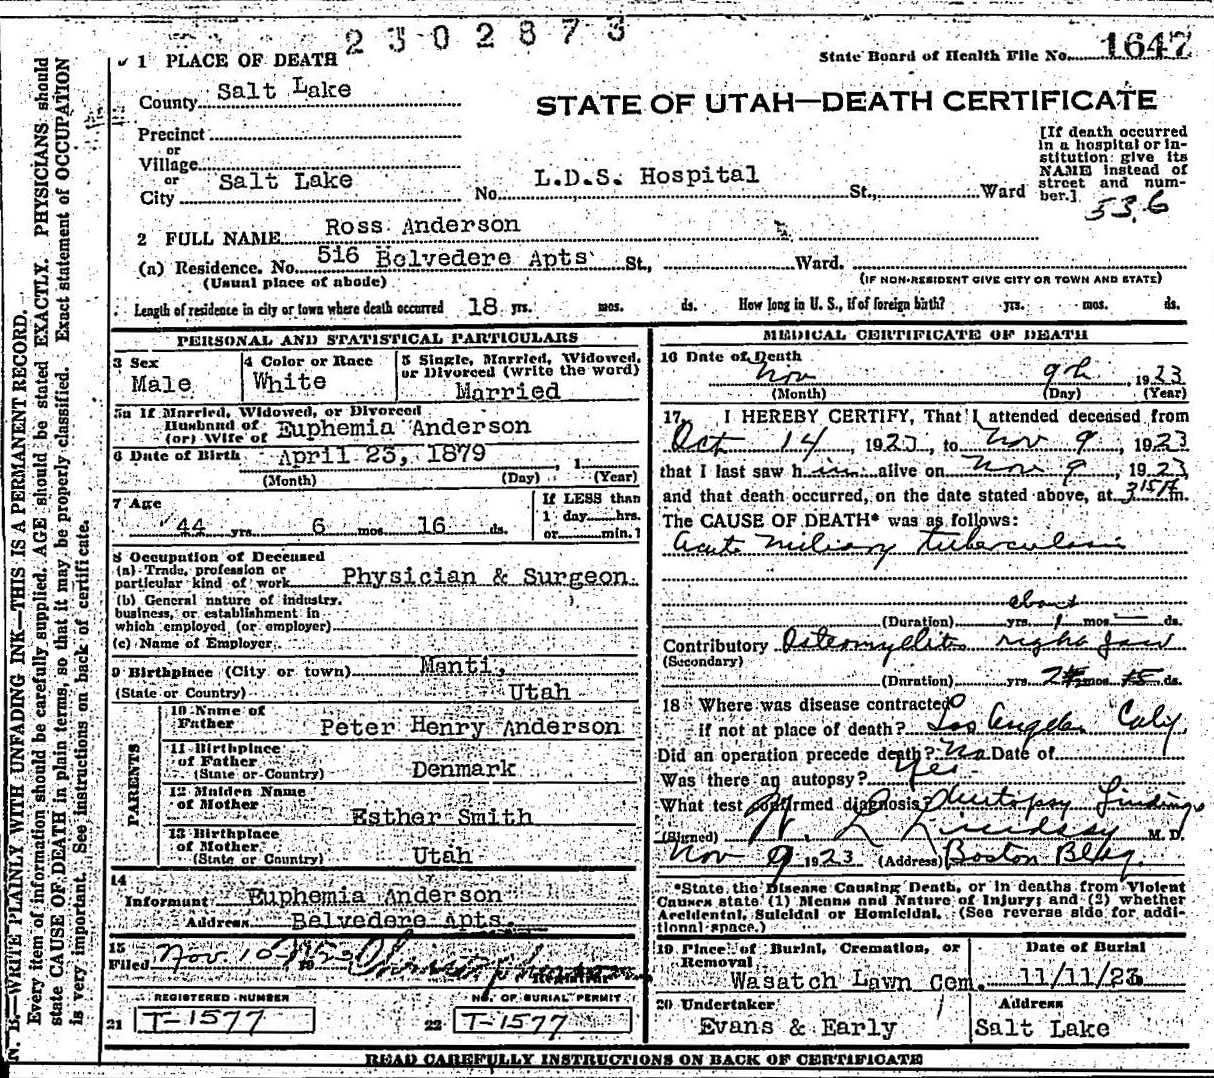 2302873
1 PLACE OF DEATH
State Board of Health File No. 1647
County Salt Lake
STATE OF UTAH—DEATH CERTIFICATE
Precinct
or
Village
or
City Salt Lake No. L.D.S. Hospital St., Ward
[If death occurred
in a hospital or in-
stitution give its
NAME instead of
street and num-
ber.]
53.6
2 FULL NAME Ross Anderson
(a) Residence. No. 516 Belvedere Apts St., Ward.
(Usual place of abode)
(IF NON-RESIDENT GIVE CITY OR TOWN AND STATE)
Length of residence in city or town where death occurred 18 yrs. mos. ds. How long in U. S., if of foreign birth? yrs. mos. ds.
PERSONAL AND STATISTICAL PARTICULARS
3 Sex
Male
4 Color or Race
White
5 Single, Married, Widowed,
or Divorced (write the word)
Married
5a If Married, Widowed, or Divorced
Husband of
(or) Wife of Euphemia Anderson
6 Date of Birth April 23, 1879, 1
(Month) (Day) (Year)
7 Age
44 yrs. 6 mos. 16 ds.
If LESS than
1 day hrs.
or min.
8 Occupation of Deceased
(a) Trade, profession or
particular kind of work Physician & Surgeon
(b) General nature of industry,
business, or establishment in
which employed (or employer)
(c) Name of Employer
9 Birthplace (City or town) Manti,
(State or Country) Utah
PARENTS
10 Name of
Father Peter Henry Anderson
11 Birthplace
of Father
(State or Country) Denmark
12 Maiden Name
of Mother Esther Smith
13 Birthplace
of Mother
(State or Country) Utah
14
Informant Euphemia Anderson
Address Belvedere Apts.
15
Filed Nov. 10 1923
Registrar
REGISTERED NUMBER
21 T-1577
NO. OF BURIAL PERMIT
22 T-1577
MEDICAL CERTIFICATE OF DEATH
16 Date of Death
Nov 9th, 1923
(Month) (Day) (Year)
17 I HEREBY CERTIFY, That I attended deceased from
Oct 14 1923, to Nov 9, 1923
that I last saw him alive on Nov 9, 1923,
and that death occurred, on the date stated above, at 3 15 m.
The CAUSE OF DEATH* was as follows:
Acute Miliary tuberculosis
about
(Duration) yrs. 1 mos. — ds.
Contributory Osteomyelitis right jaw
(Secondary)
(Duration) yrs. 2 mos. ds.
18 Where was disease contracted
if not at place of death? Los Angeles Calif
Did an operation precede death? No Date of
Was there an autopsy? Yes
What test confirmed diagnosis? Autopsy findings
(Signed) W. L Lindsay M. D.
Nov 9 1923 (Address) Boston Bldg.
*State the Disease Causing Death, or in deaths from Violent
Causes state (1) Means and Nature of Injury; and (2) whether
Accidental, Suicidal or Homicidal. (See reverse side for addi-
tional space.)
19 Place of Burial, Cremation, or
Removal
Wasatch Lawn Cem.
Date of Burial
11/11/23
20 Undertaker
Evans & Early
Address
Salt Lake
READ CAREFULLY INSTRUCTIONS ON BACK OF CERTIFICATE
N. B.—WRITE PLAINLY WITH UNFADING INK—THIS IS A PERMANENT RECORD.
Every item of information should be carefully supplied. AGE should be stated EXACTLY. PHYSICIANS should
state CAUSE OF DEATH in plain terms, so that it may be properly classified. Exact statement of OCCUPATION
is very important. See instructions on back of certificate.